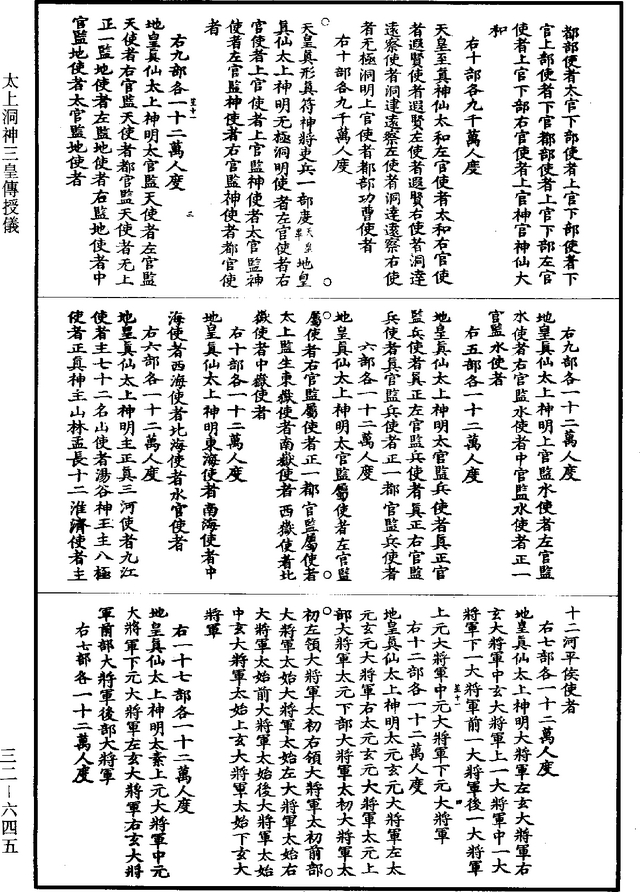 太上洞神三皇傳授儀
三二—六四五
都部使者太官下部使者上官下部使者下
官上部使者下官都部使者上官下部左官
使者上官下部右官使者上官神官神仙大
和
右十部各九千萬人度
天皇至真神仙太和左官使者太和右官使
者遐賢使者遐賢左使者遐賢右使者洞達
遠察使者洞達遠察左使者洞達遠察右使
者无極洞明上官使者都部功曹使者
右十部各九千萬人度
天皇真形真符神將吏兵一部度 地皇
真仙太上神明无極洞明使者左官使者右
官使者上官使者上官監神使者太官監神
使者左官監神使者右官監神使者都官使
者
右九部各一十二萬人度
地皇真仙太上神明太官監天使者左官監
天使者右官監天使者都官監天使者无上
正一監地使者左監地使者右監地使者中
官監地使者太官監地使者
右九部各一十二萬人度
地皇真仙太上神明上官監水使者左官監
水使者右官監水使者中官監水使者正一
官監水使者
右五部各一十二萬人度
地皇真仙太上神明太官監兵使者真正官
監兵使者真正左官監兵使者真正右官監
兵使者真官監兵使者正一都官監兵使者
六部各一十二萬人度
地皇真仙太上神明太官監屬使者左官監
屬使者右官監屬使者正一都官監屬使者
太上監生東嶽使者南嶽使者西嶽使者北
嶽使者中嶽使者
右十部各一十二萬人度
地皇真仙太上神明東海使者南海使者中
海使者西海使者北海使者水官使者
右六部各一十二萬人度
地皇真仙太上神明主正真三河使者九江
使者主七十二名山使者湯谷神王主八極
使者正真神主山林孟長十二淮濟使者主
十二河平侯使者
右七部各一十二萬人度
地皇真仙太上神明大將軍左玄大將軍右
玄大將軍中玄大將軍上一大將軍中一大
將軍下一大將軍前一大將軍後一大將軍
上元大將軍中元大將軍下元大將軍
右十二部各一十二萬人度
地皇真仙太上神明太元玄元大將軍左太
元玄元大將軍右太元玄元大將軍太元上
部大將軍太元下部大將軍太初大將軍太
初左領大將軍太初右領大將軍太初前部
大將軍太始大將軍太始左大將軍太始右
大將軍太始前大將軍太始後大將軍太始
中玄大將軍太始上玄大將軍太始下玄大
將軍
右一十七部各一十二萬人度
地皇真仙太上神明太素上元大將軍中元
大將軍下元大將軍左玄大將軍右玄大將
軍前部大將軍後部大將軍
右七部各一十二萬人度